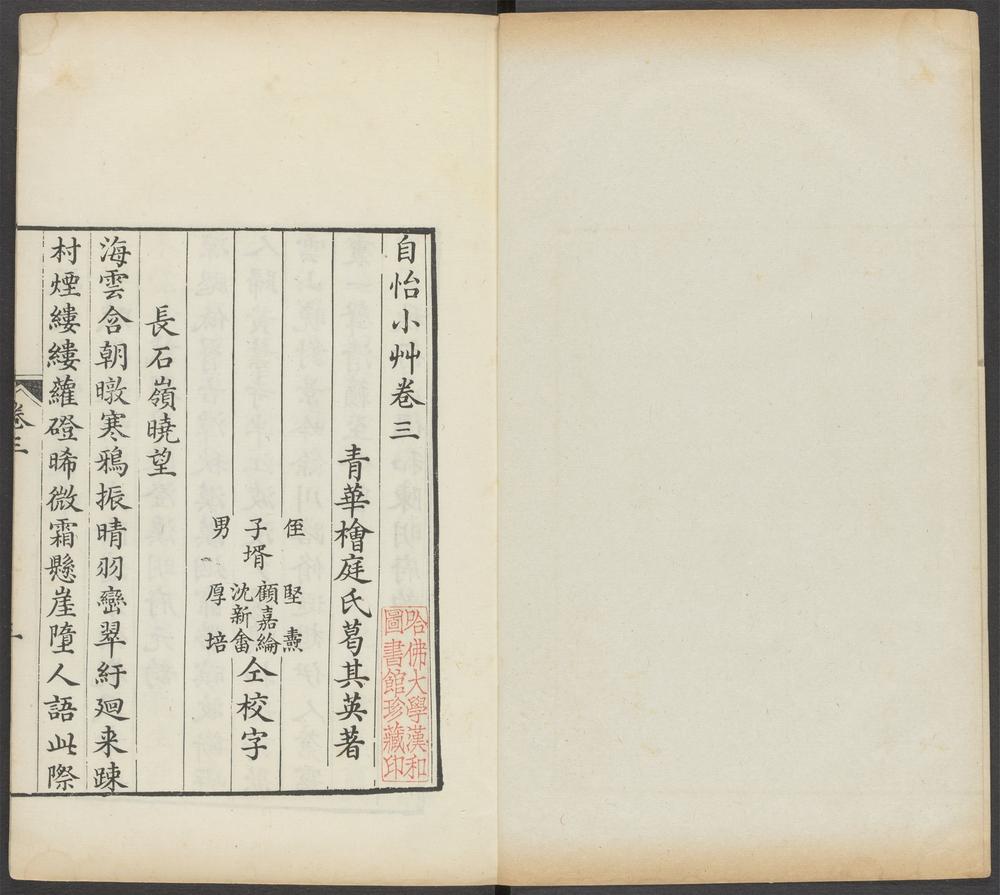 自怡小艸卷三
青華檜庭氏葛其英著
侄 堅 燾
子壻 顧嘉綸 沈新畬 仝校字
男 厚培
長石嶺曉望
海雲含朝暾寒鴉振晴羽巒翠紆廻来踈
村煙縷縷蘿磴晞微霜懸崖墮人語此際
卷三
一
哈佛大學漢和
圖書館珍藏印